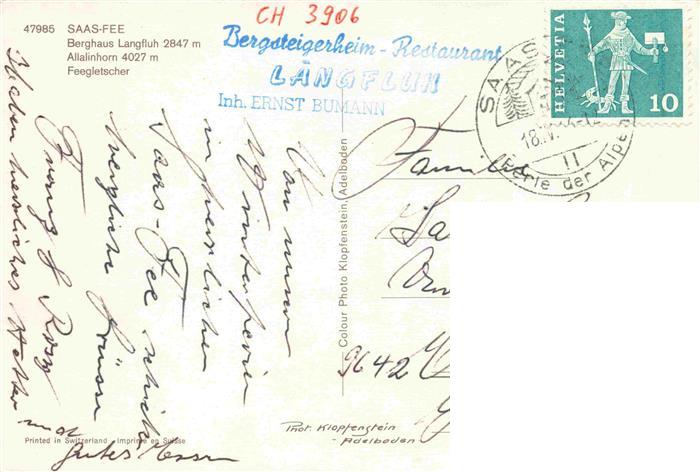 47985 SAAS-FEE
Berghaus Langfluh 2847 m
Allalinhorn 4027 m
Feegletscher
CH 3906
Bergsteigerheim-Restaurant
LÄNGFLUH
Inh. ERNST BUMANN
HELVETIA
10
SAAS
18.
11
Perle der Alpen
Von unsern
Winterferien
in herrlichen
Saas-Fee schickt
herzliche Grüsse
Franz & Rosy
Haben herrliches Wetter und
gutes Essen
Colour Photo Klopfenstein, Adelboden
Familie
9642
Phot. Klopfenstein
-Adelboden
Printed in Switzerland - Imprimé en Suisse